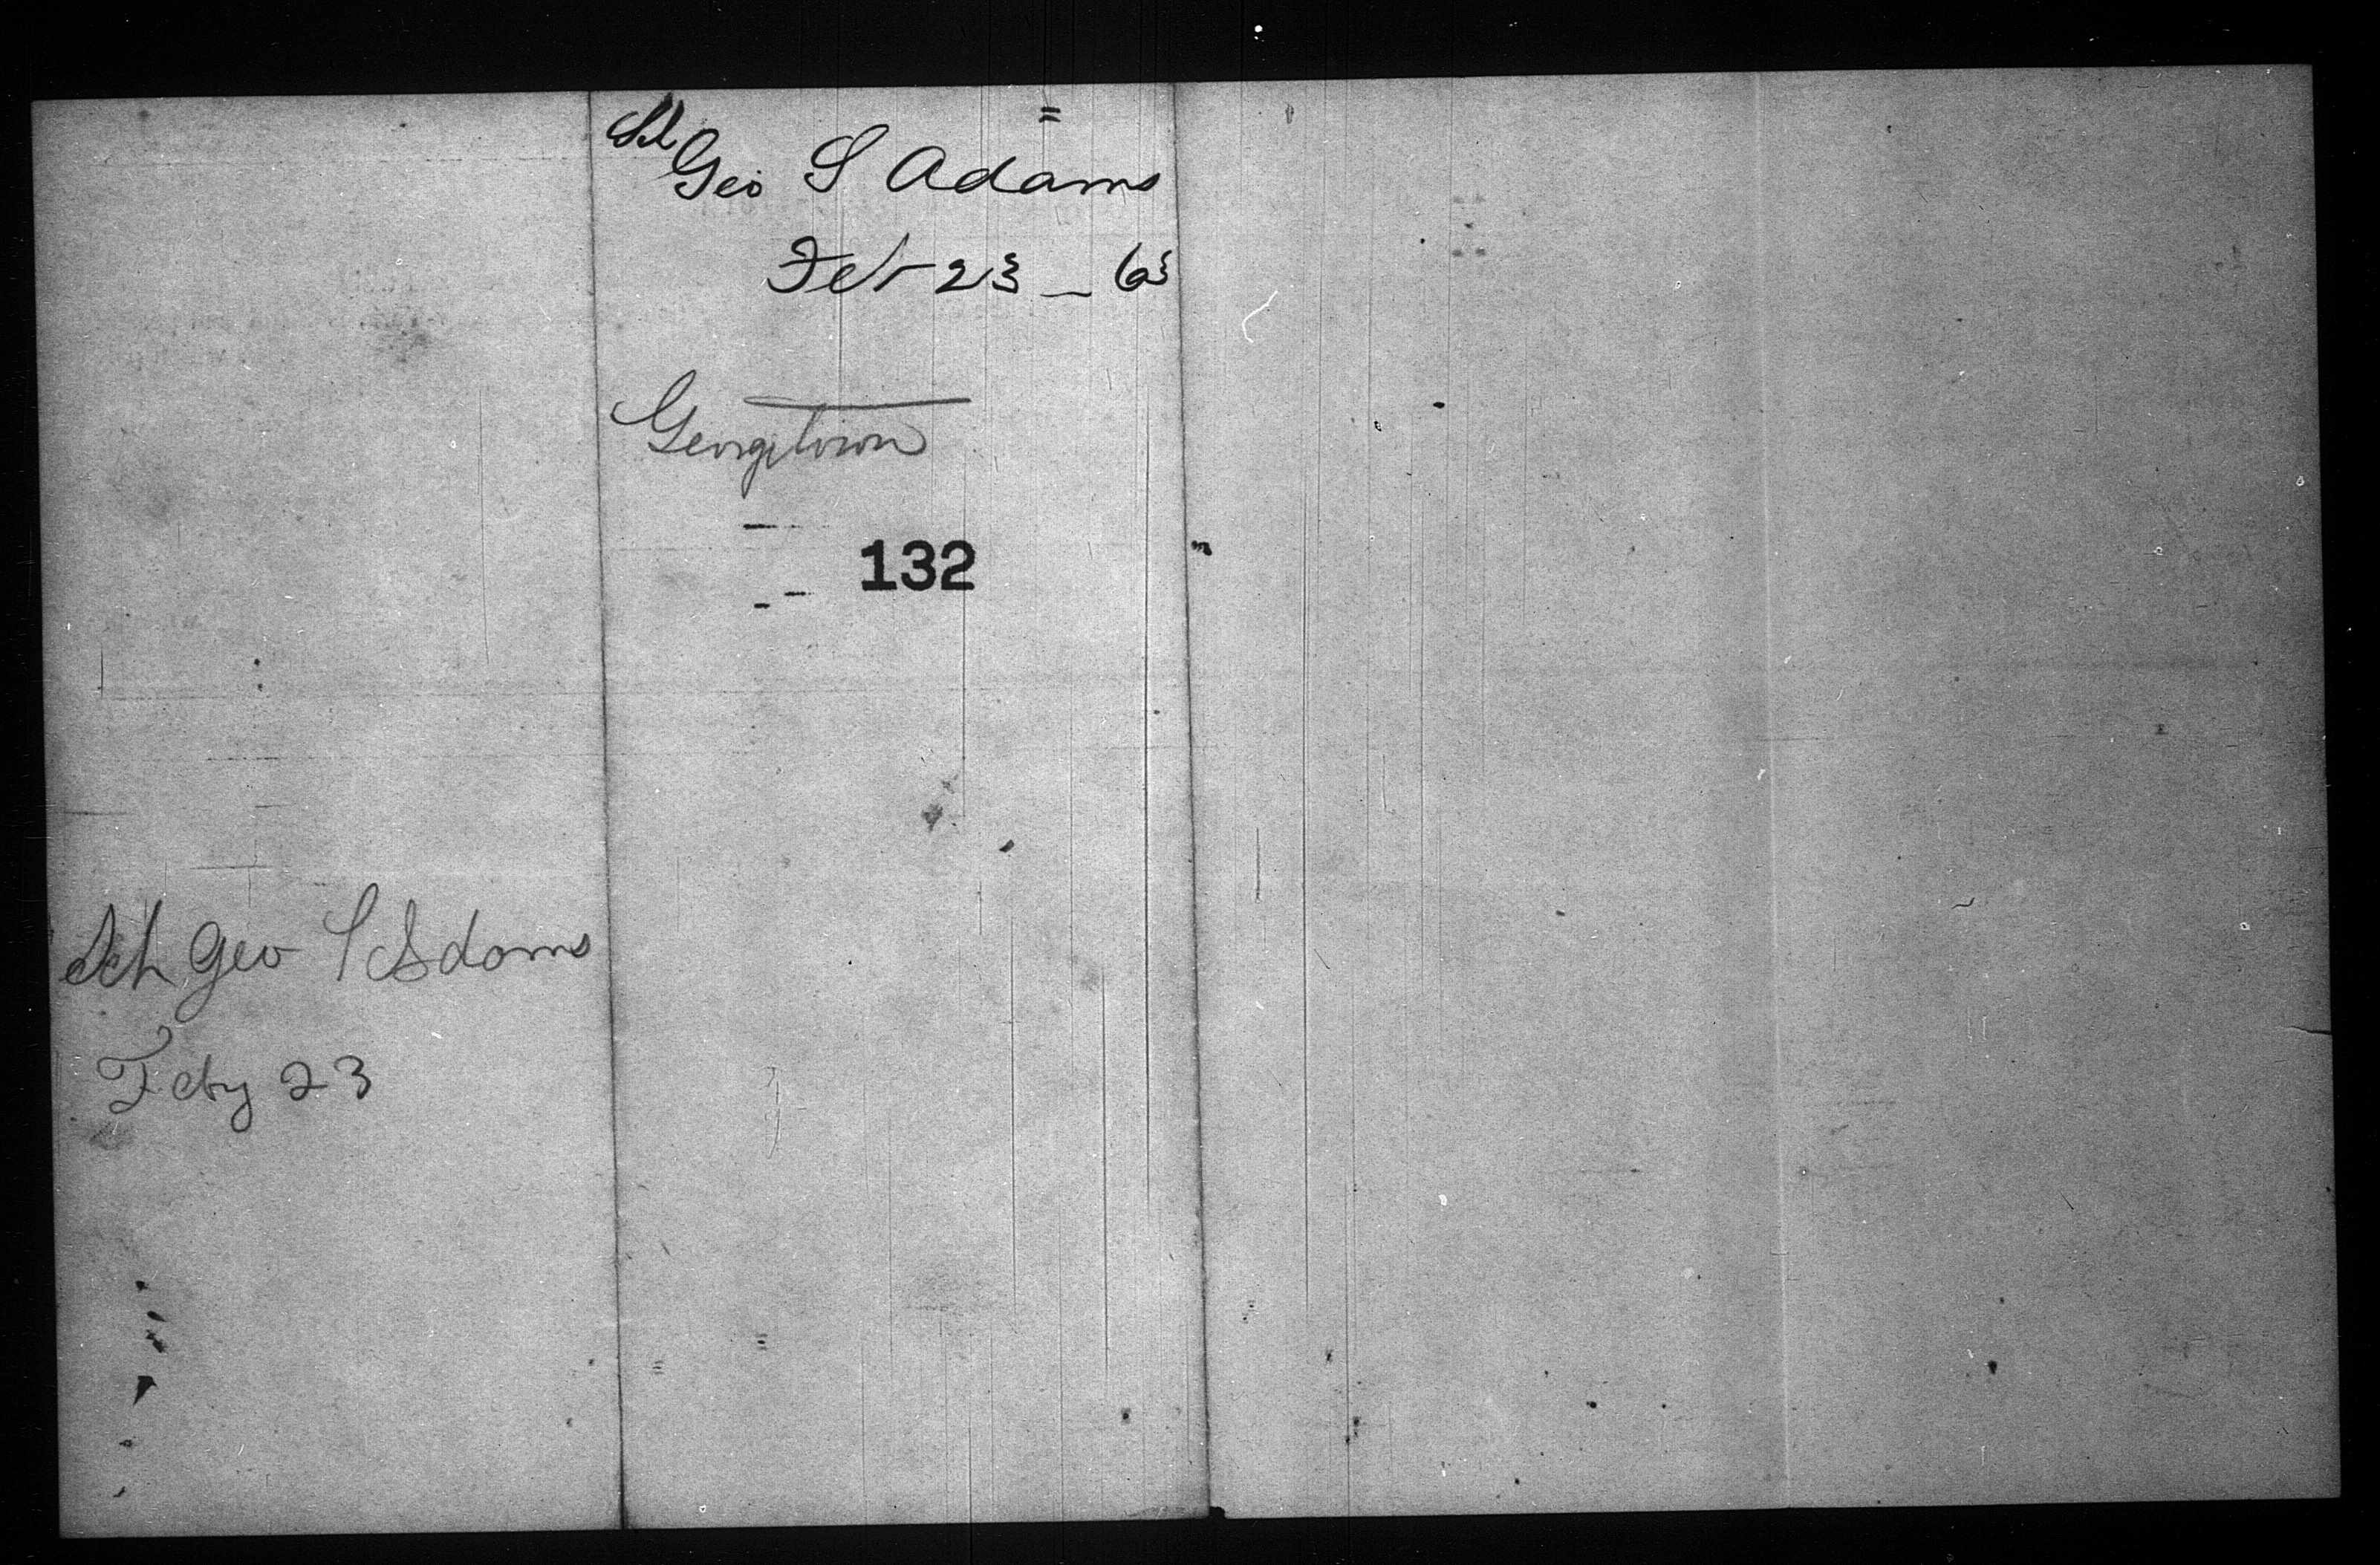 Sch
Geo S Adams
Feb 23 - 63
Georgetown
132
Sch Geo S Adams
Feby 23